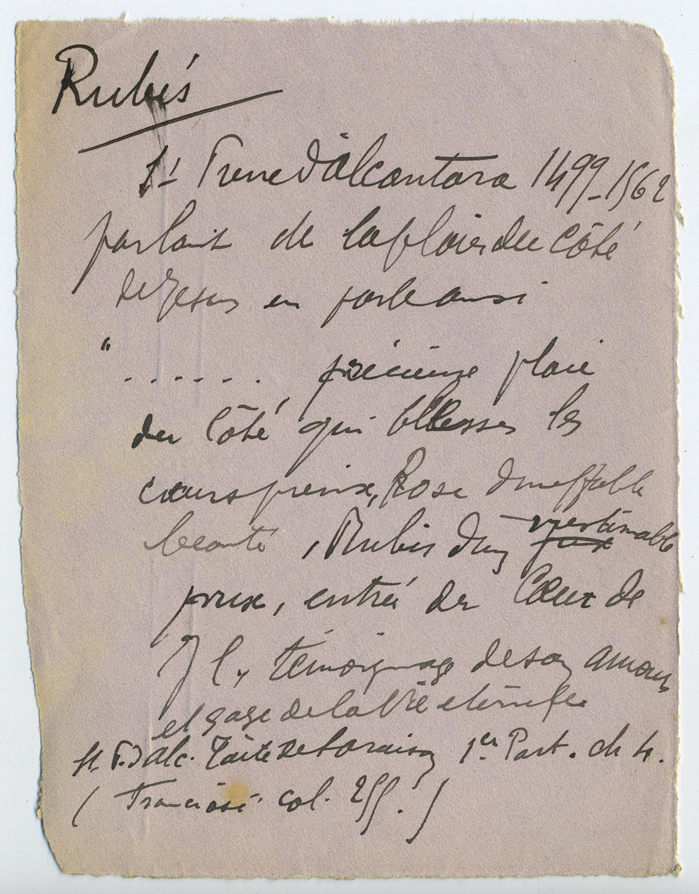 Rubis
St Pierre d'Alcantara 1499-1562
parlant de la plaie du Côté
de Jesus en parle ainsi
"...... précieuse plaie
du Côté qui blesses les
cœurs pieux, Rose d'ineffable
beauté, Rubis d'un inestimable
prix, entrée du Cœur de
J C, témoignage de son amour
et gage de la Vie eternelle
St P. d'Alc. Traité de l'oraison 1ere Part. ch 4.
( Franciosi col. 255. )